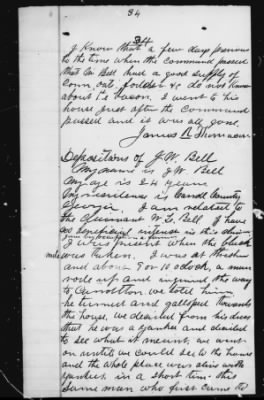 34
I Know that a few days previous
to the time when the command passed
that Mr Bell had a good supply of
Corn, oats fodder &c do not know
about the bacon. I went to his
house just after the Command
passed and it was all gone.
James R
Depositions of J.W. Bell
My name is J W Bell
My age is 24 years
My residence is Carroll County
Georgia I am related to
the Claimant W. L. Bell I have
no beneficial interest in this claim
I was present when the
was taken. I was at
and about 9 or 10 o'clock, a man
rode up and inquired the way
to Carrollton we told him
he turned and galloped towards
the house, we decided from his dress
that he was a yankee and decided
to see what it meant, we went
on until we could see to the house
and the whole place was alive with
yankees, in a short time the
same man who first came to